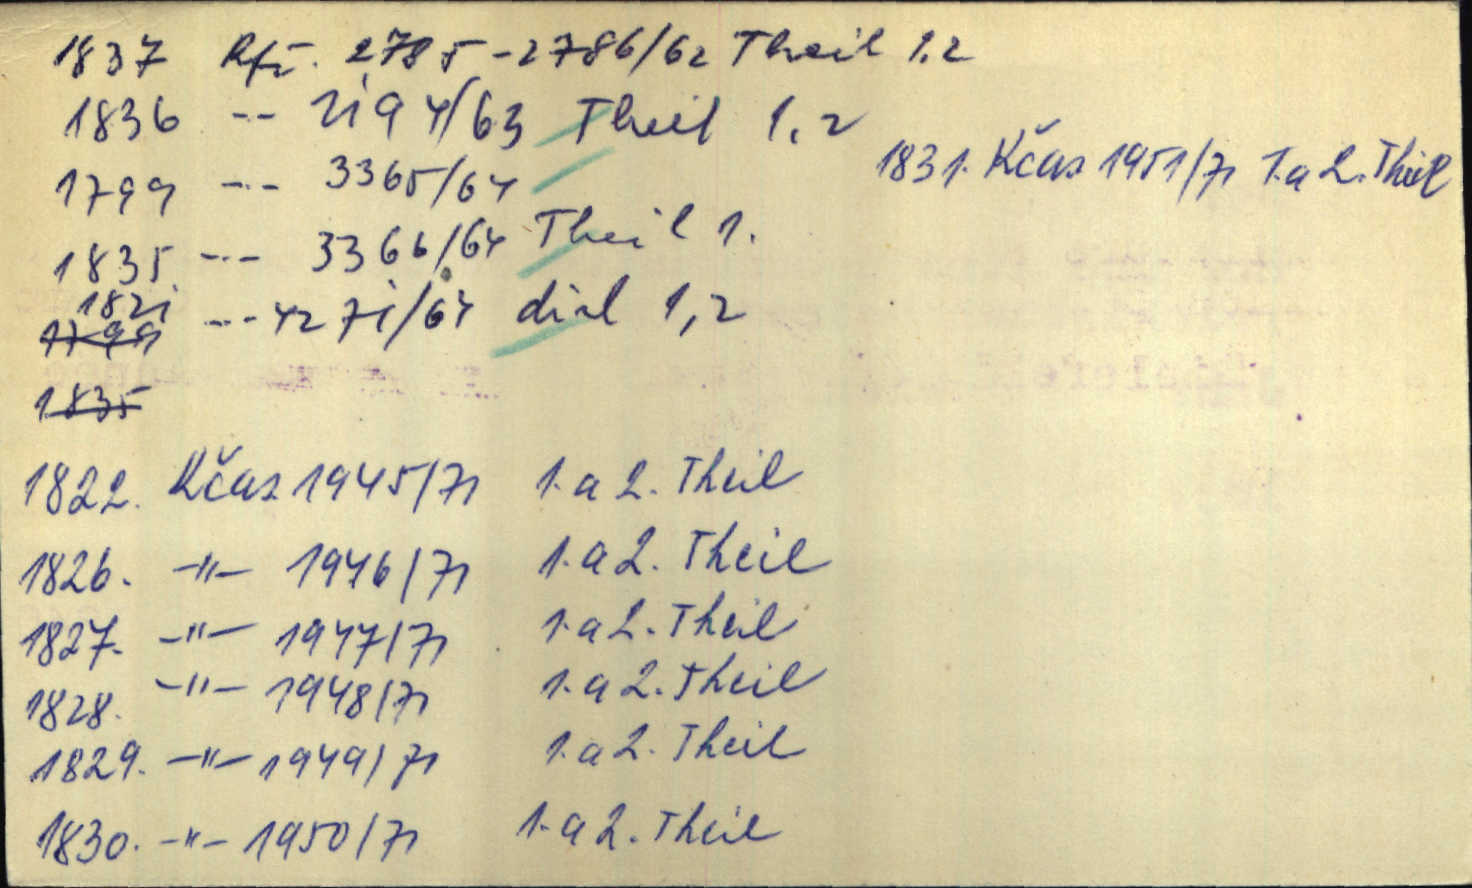 1837 Rfi. 2785-2786/62 Theil 1.2
1836 -·- 2194/63 Theil 1,2
1799 -·- 3365/64
1835 -·- 3366/64 Theil 1.
1821
1799 -·- 4271/64 díl 1,2
1835
1831. Kčas 1951/71 1. a 2. Theil
1822. Kčas 1945/71 1. a 2. Theil
1826. -"- 1946/71 1. a 2. Theil
1827. -"- 1947/71 1. a 2. Theil
1828. -"- 1948/71 1. a 2. Theil
1829. -"- 1949/71 1. a 2. Theil
1830. -"- 1950/71 1. a 2. Theil